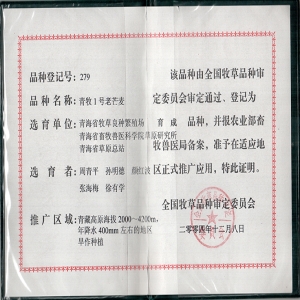 品种登记号：279
品种名称：青牧1号老芒麦
选育单位：青海省牧草良种繁殖场
青海省畜牧兽医科学院草原研究所
青海省草原总站
选育者：周青平 孙明德 颜红波
张海梅 徐有学
推广区域：青藏高原海拔2000～4200m，
年降水400mm左右的地区
旱作种植
该品种由全国牧草品种审
定委员会审定通过、登记为
育成 品种，并报农业部畜
牧兽医局备案，准予在适应地
区正式推广应用，特此证明。
全国牧草品种审定委员会
二零零四年十二月八日